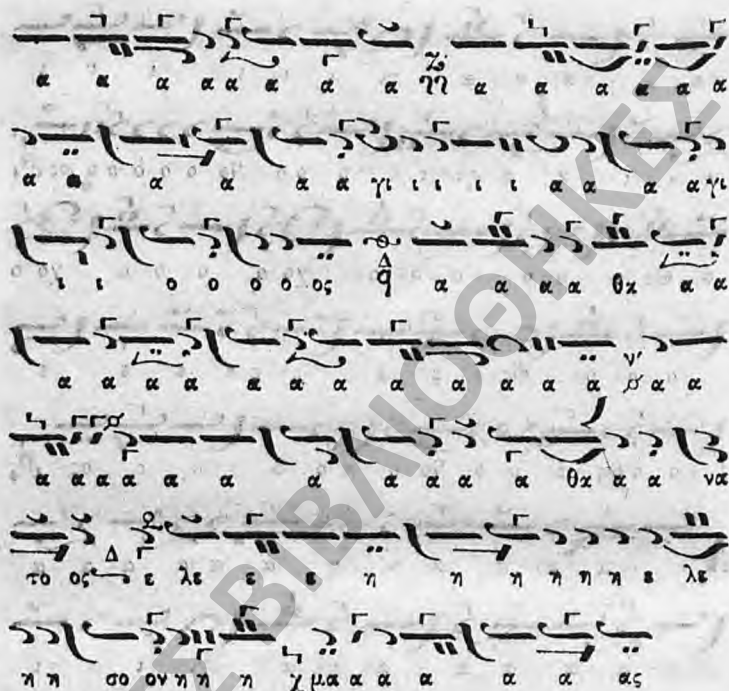 α α α α α α α α ηη α α α α α α
α α α α α α γι ι ι ι ι α α α α γι
ι ι ο ο ο ο ος q α α α α θα α α
α α α α α α α α α α α α α α
α α α α α α α α α α α θα α α να
το ος Δ ε λε ε ε η η η η η η ε λε
η η σο ον η η η χ μα α α α α α ας
ΒΙΒΛΙΟΘΗΚΕΣ